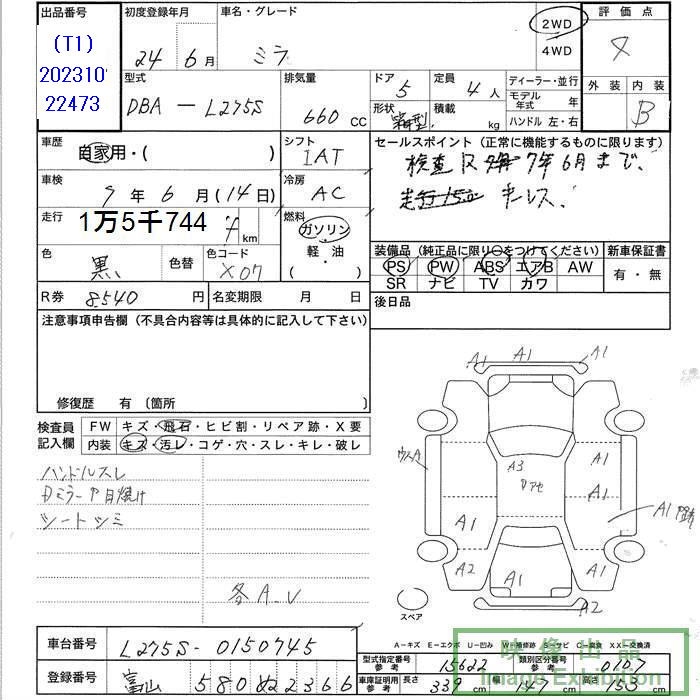 出品番号
(T1)
202310
22473
初度登録年月
24 年 6 月
車名・グレード
ミラ
2WD
4WD
評価点
4
外装 内装
B
型式
DBA - L275S
排気量
660 CC
ドア 5
形状 箱型
定員 4 人
積載 kg
ディーラー・並行
モデル年式 年
ハンドル 左・右
車歴
自家用・( )
シフト
IAT
セールスポイント (正常に機能するものに限ります)
検査R 7年6月まで、
走行150 キーレス、
車検
7 年 6 月 (14日)
冷房
AC
走行
1万5千744 km
燃料
ガソリン・
軽・油
( )
色
黒
色替
色コード
X07
装備品 (純正品に限り○をつけてください)
PS PW ABS エアB AW
SR ナビ TV カワ
新車保証書
有・無
R券 8540 円
名変期限 月 日
後日品
注意事項申告欄 (不具合内容等は具体的に記入して下さい)
修復歴 有 〔箇所 〕
検査員
記入欄
FW キズ・飛石・ヒビ割・リペア跡・X要
内装 キズ・汚レ・コゲ・穴・スレ・キレ・破レ
ハンドルスレ
Dミラー 日焼け
シートシミ
各A.U
A1 A1 A1
ウスA
A3
Rアセ
A1
A1
A1
A1
A2
A1
A1
A2
スペア
A-キズ E-エクボ U-凹み W-補修跡 S-サビ C-腐食 XX-交換済
車台番号 L275S-0150745
登録番号 富山 580 ぬ 2366
型式指定番号 参考 15622
類別区分番号 参考 0107
車庫証明用 参考 長さ 339 cm 幅 147 cm 高さ 153 cm
映像出品
Image Exhibition